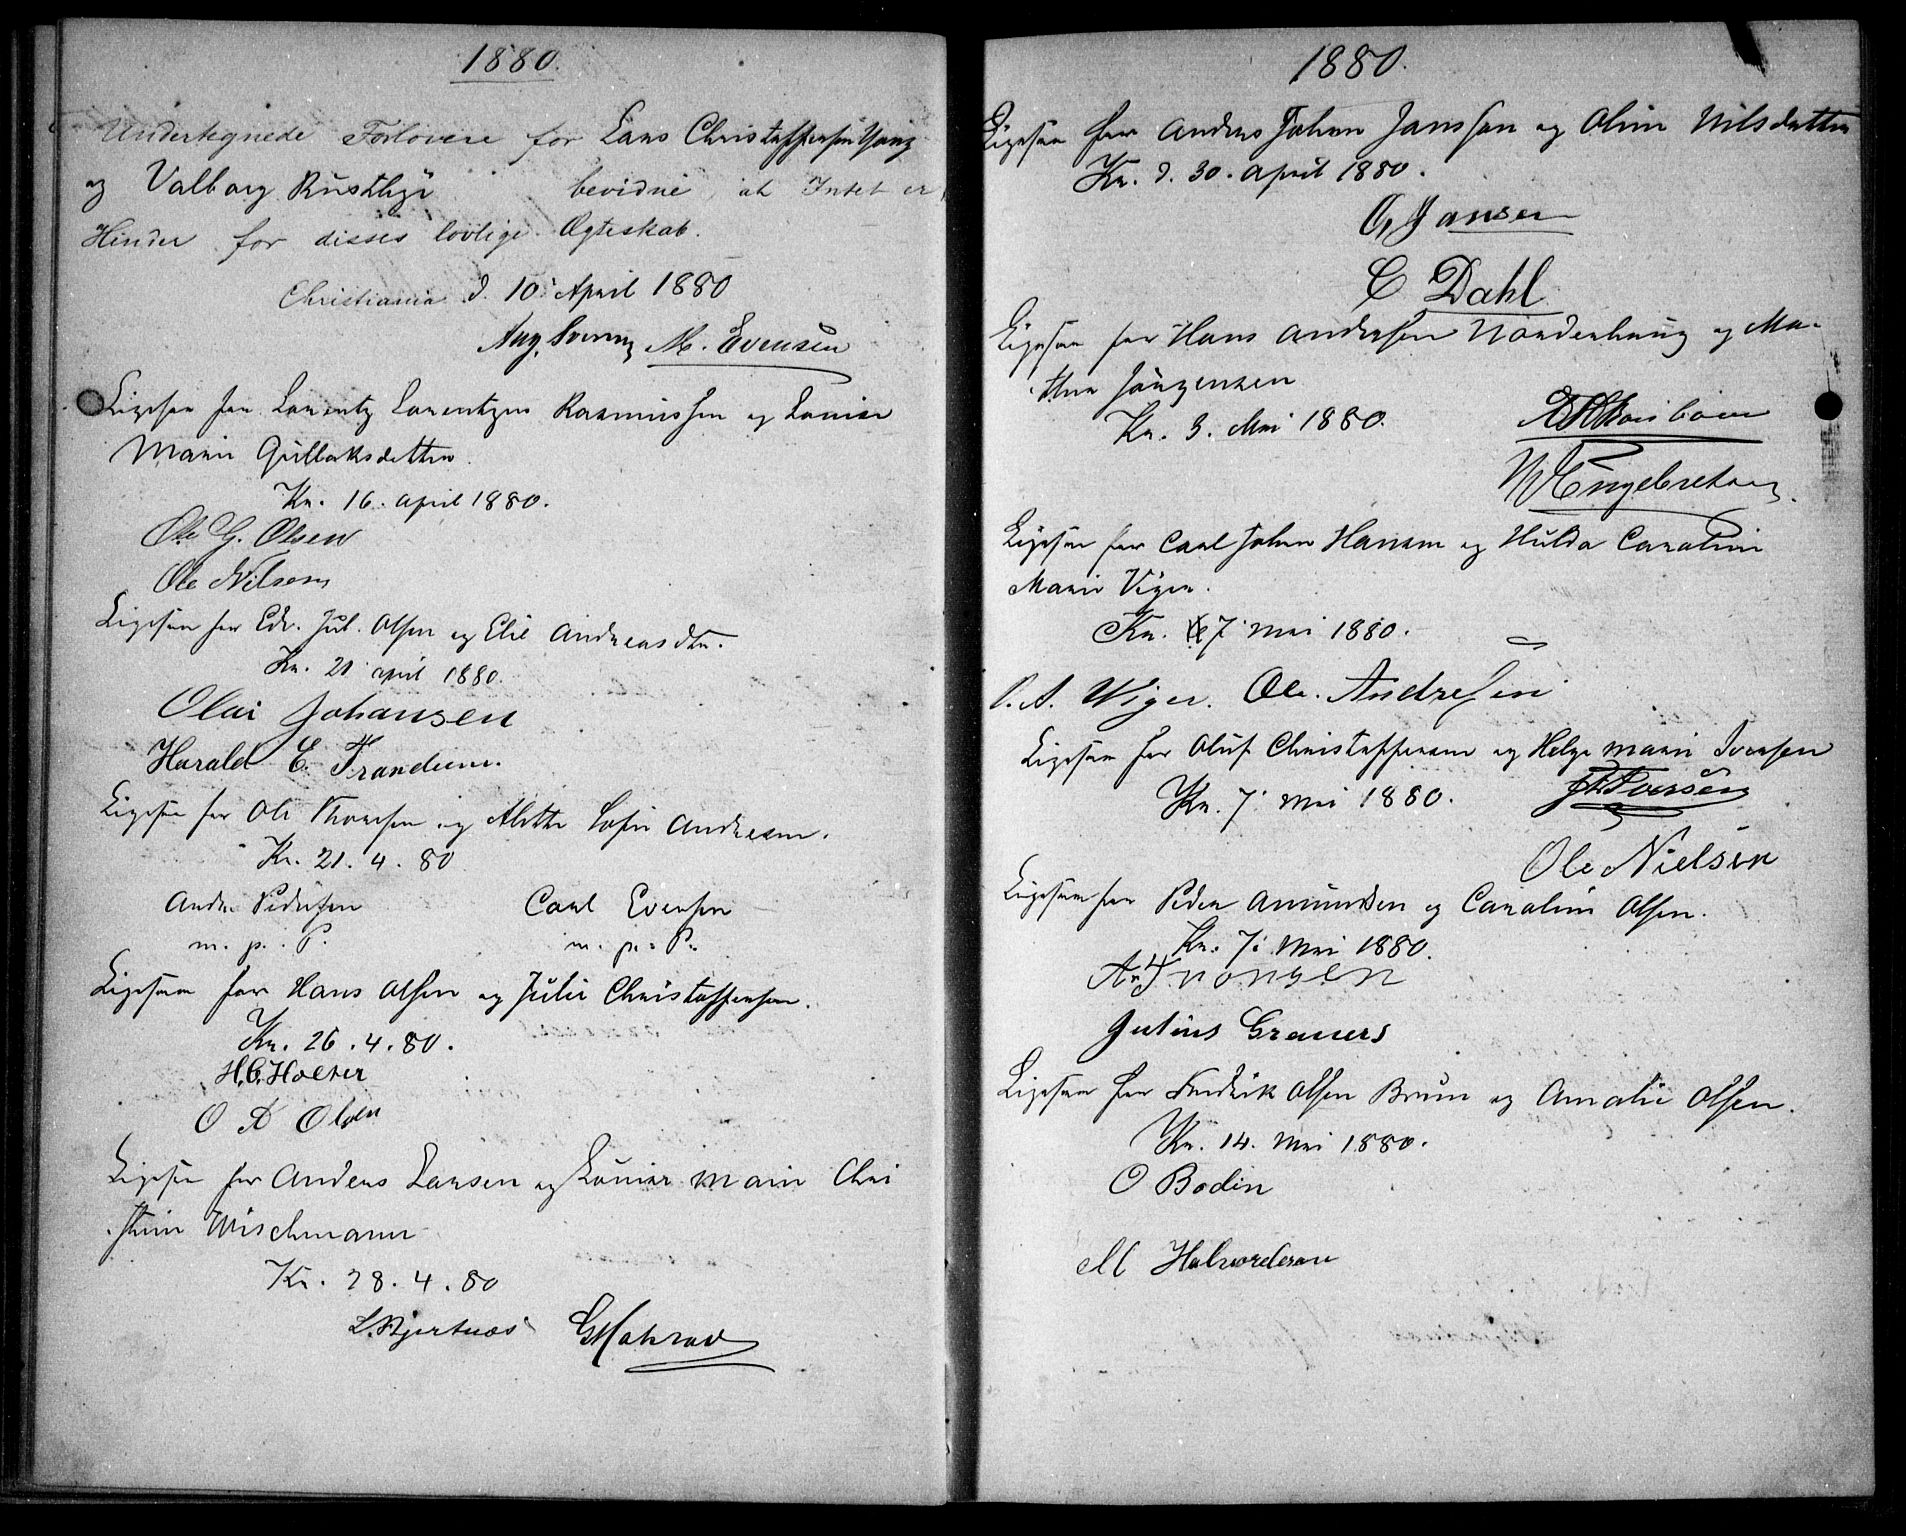 1880.
Undertegnede Forlovere for Lars Christoffersen
og Valborg Rusthøi bevidne, at Intet er
Hinder for disses lovlige Ægteskab.
Christiania d. 10 April 1880
Aug. M. Evensen
Ligesaa for Lorentz Lorentzen Rasmussen og Lovise
Marie Gulbaksdatter
Kr. 16. april 1880.
Ole G. Olsen
Ole Nilsen
Ligesaa for Edv. Jul. Olsen og Elie Andreasdtr.
Kr. 21 april 1880.
Olai Johansen
Harald E. Frandsen.
Ligesaa for Ole Thoresen og Alette Sofie Andresen.
Kr. 21. 4. 80
Andr. Pedersen Carl Evensen
m. p. P. m. p. P.
Ligesaa for Hans Olsen og Julie Christoffersen.
Kr. 26. 4. 80.
H. C. Holter
O A Olsen
Ligesaa for Anders Larsen og Lovise Marie Chri
stine Wischmann
Kr. 28. 4. 80
L. Bjertnæs
1880.
Ligesaa for Anders Johan Janssen og Oline Nilsdatter
Kr. d. 30. april 1880.
G Jansen
C Dahl
Ligesaa for Hans Andersen Nordenhaug og Ma-
thea Jørgensen
Kr. 3. Mai 1880.
Engebretsen
Ligesaa for Carl Johan Hansen og Hulda Caroline
Marie Viger.
Kr. 7 mai 1880.
O. A. Wiger. Ole. Andresen
Ligesaa for Oluf Christoffersen og Helga Marie Iversen
Kr. 7. mai 1880. Iversen
Ole Nielsen
Ligesaa for Peder Amundsen og Caroline Olsen.
Kr. 7. Mai 1880.
Julius Gravers
Ligesaa for Fredrik Olsen Bruun og Amalie Olsen.
Kr. 14. Mai 1880.
O Bodin
M Halvordsen